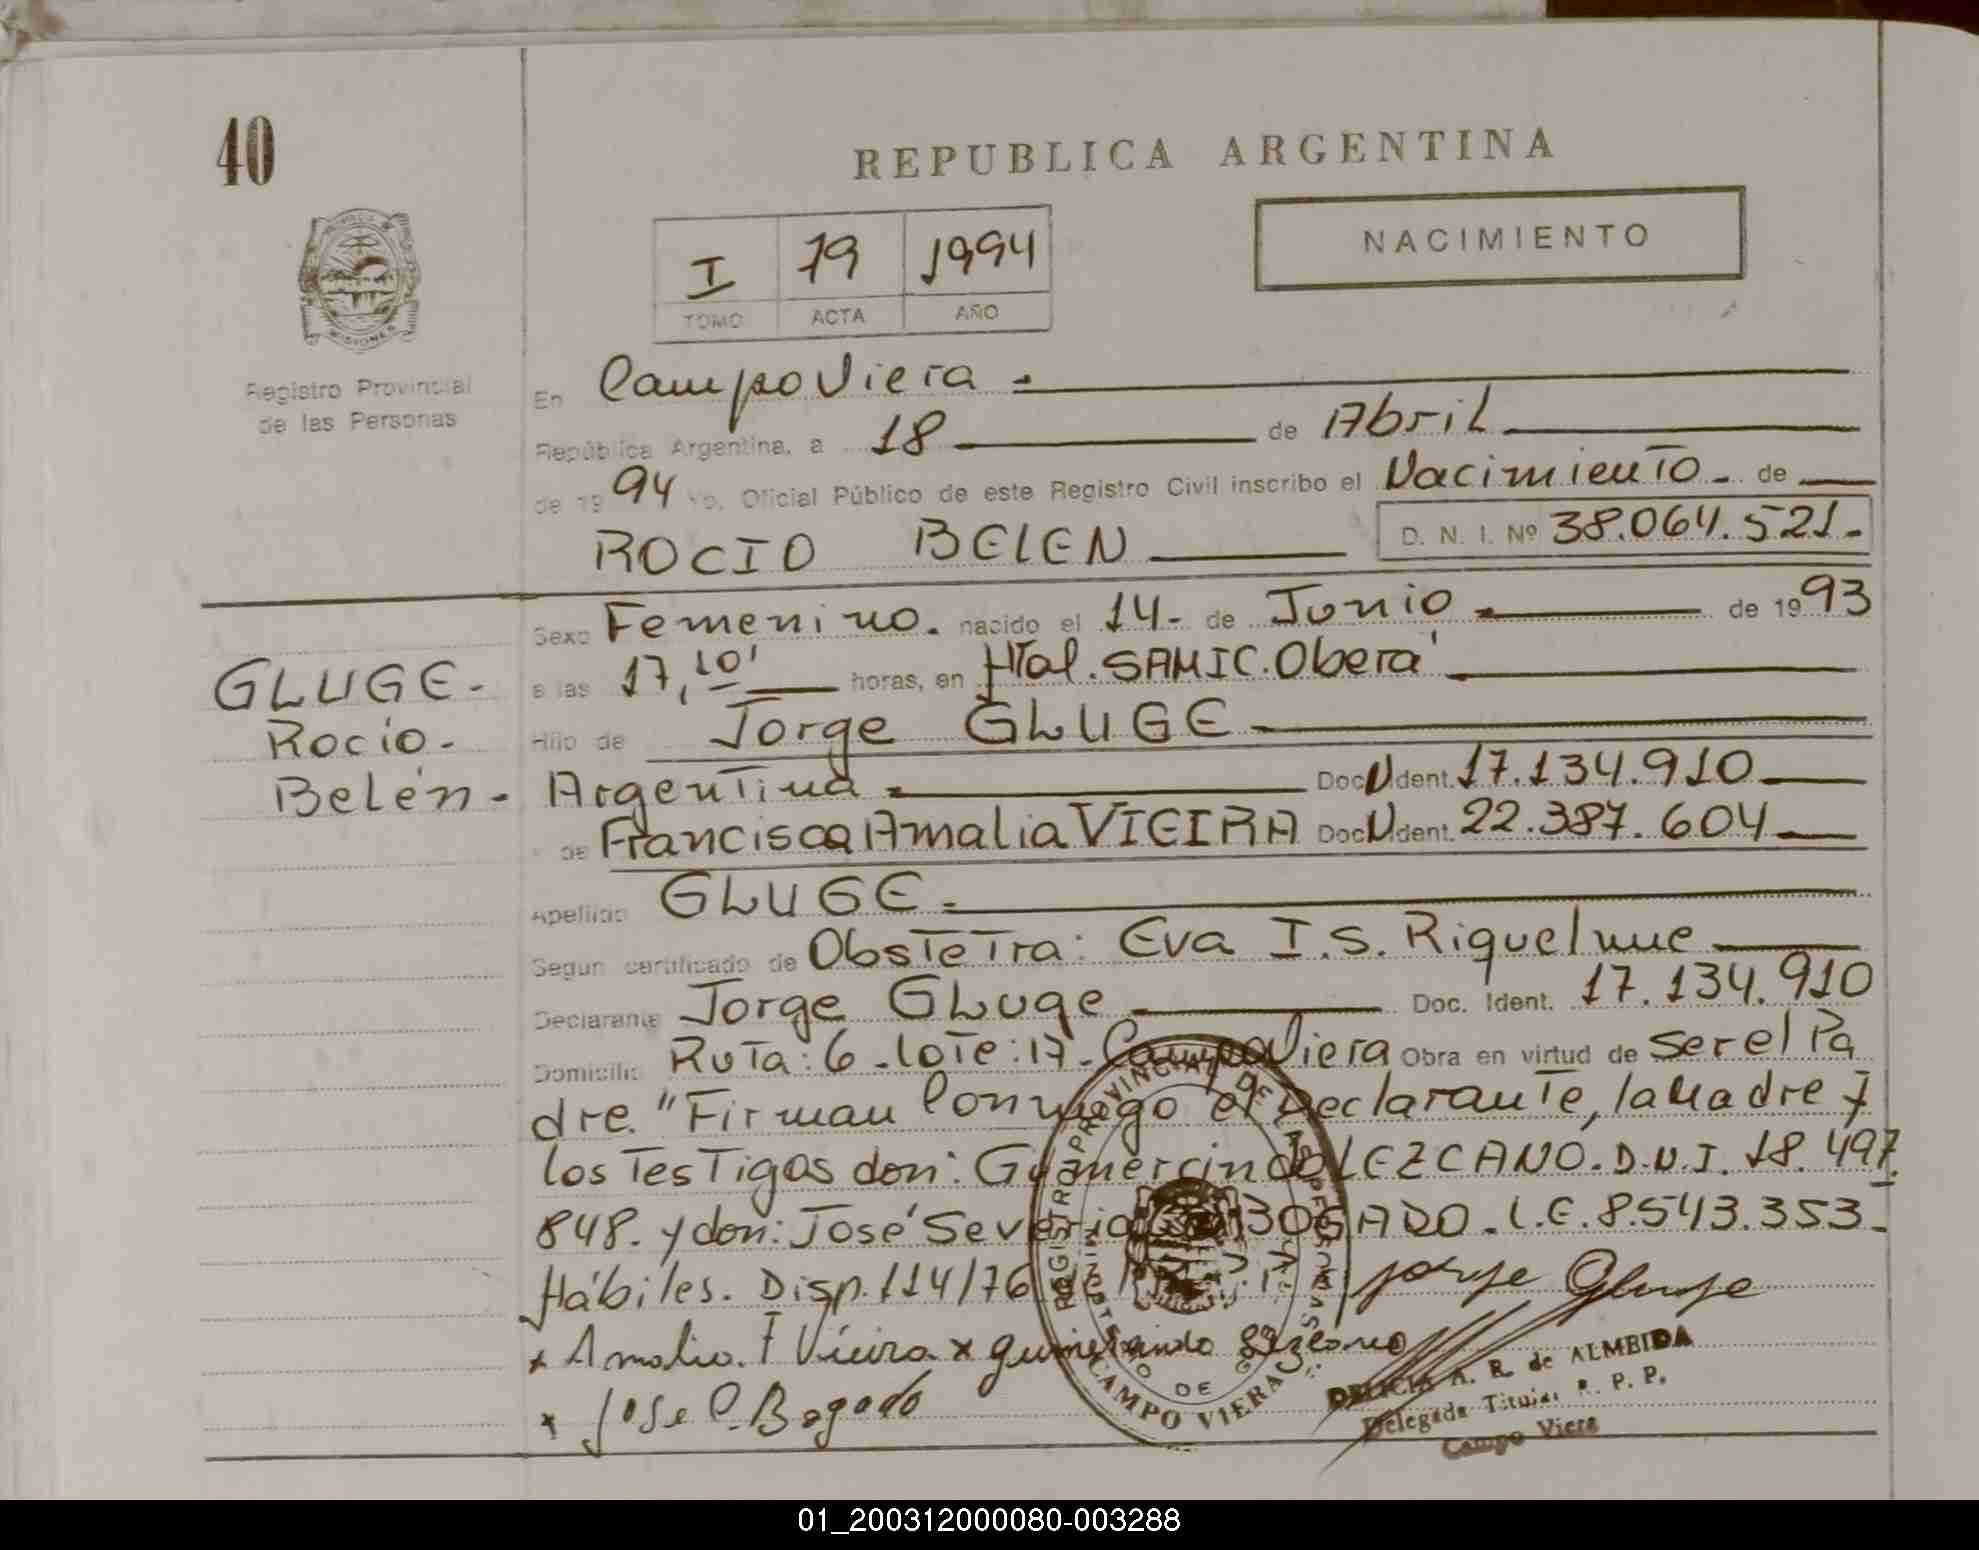 40
REPUBLICA ARGENTINA
NACIMIENTO
I 79 1994
TOMO ACTA AÑO
MISIONES
Registro Provincial
de las Personas
En Campo Viera -
República Argentina, a 18 de Abril
de 19 94 Yo, Oficial Público de este Registro Civil inscribo el Nacimiento - de
ROCIO BELEN D. N. I. Nº 38.064.521.-
Sexo Femenino. nacido el 14- de Junio - de 19 93
a las 17,10' horas, en Htal. SAMIC. Oberá
Hijo de Jorge GLUGE -
GLUGE-
Rocio-
Belén-
Argentina - Doc N Ident. 17.134.910
de Francisca Amalia VIEIRA Doc N Ident. 22.387.604
Apellido GLUGE -
Segun certificado de Obstetra: Eva I.S. Riquelme
Declarante Jorge Gluge Doc. Ident. 17.134.910
Domicilio Ruta: 6 - lote: 17 - Campo Viera Obra en virtud de ser el Pa
dre. "Firman Conmigo el Declarante, la Madre y
los Testigos don: Gumercindo LEZCANO. D.N.I. 18.497.
848. y don: José Severia BOGADO. L.E. 8.543.353-
Hábiles. Disp. 114/76 Jorge Gluge
x Amalia. F Vieira x gumersindo Lezcano
x Jose C. Bogado
REGISTRO PROVINCIAL DE LAS PERSONAS
MINISTERIO DE
CAMPO VIERA
DELICIA A. R. de ALMEIDA
Delegada Titular R. P. P.
Campo Viera
01_200312000080-003288